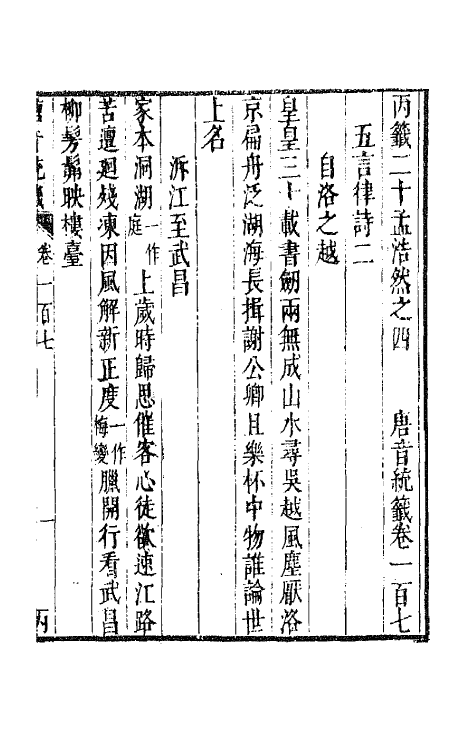 丙籖二十孟浩然之四　唐音統籖卷一百七
五言律詩二
自洛之越
皇皇三十載書劒兩無成山水尋吳越風塵厭洛
京扁舟泛湖海長揖謝公卿且樂杯中物誰論世
上名
泝江至武昌
家本洞湖一作庭上歲時歸思催客心徒欲速江路
苦邅迴殘凍因風解新正度一作梅變臘開行看武昌
柳髣髴映樓臺
卷一百七
一
丙